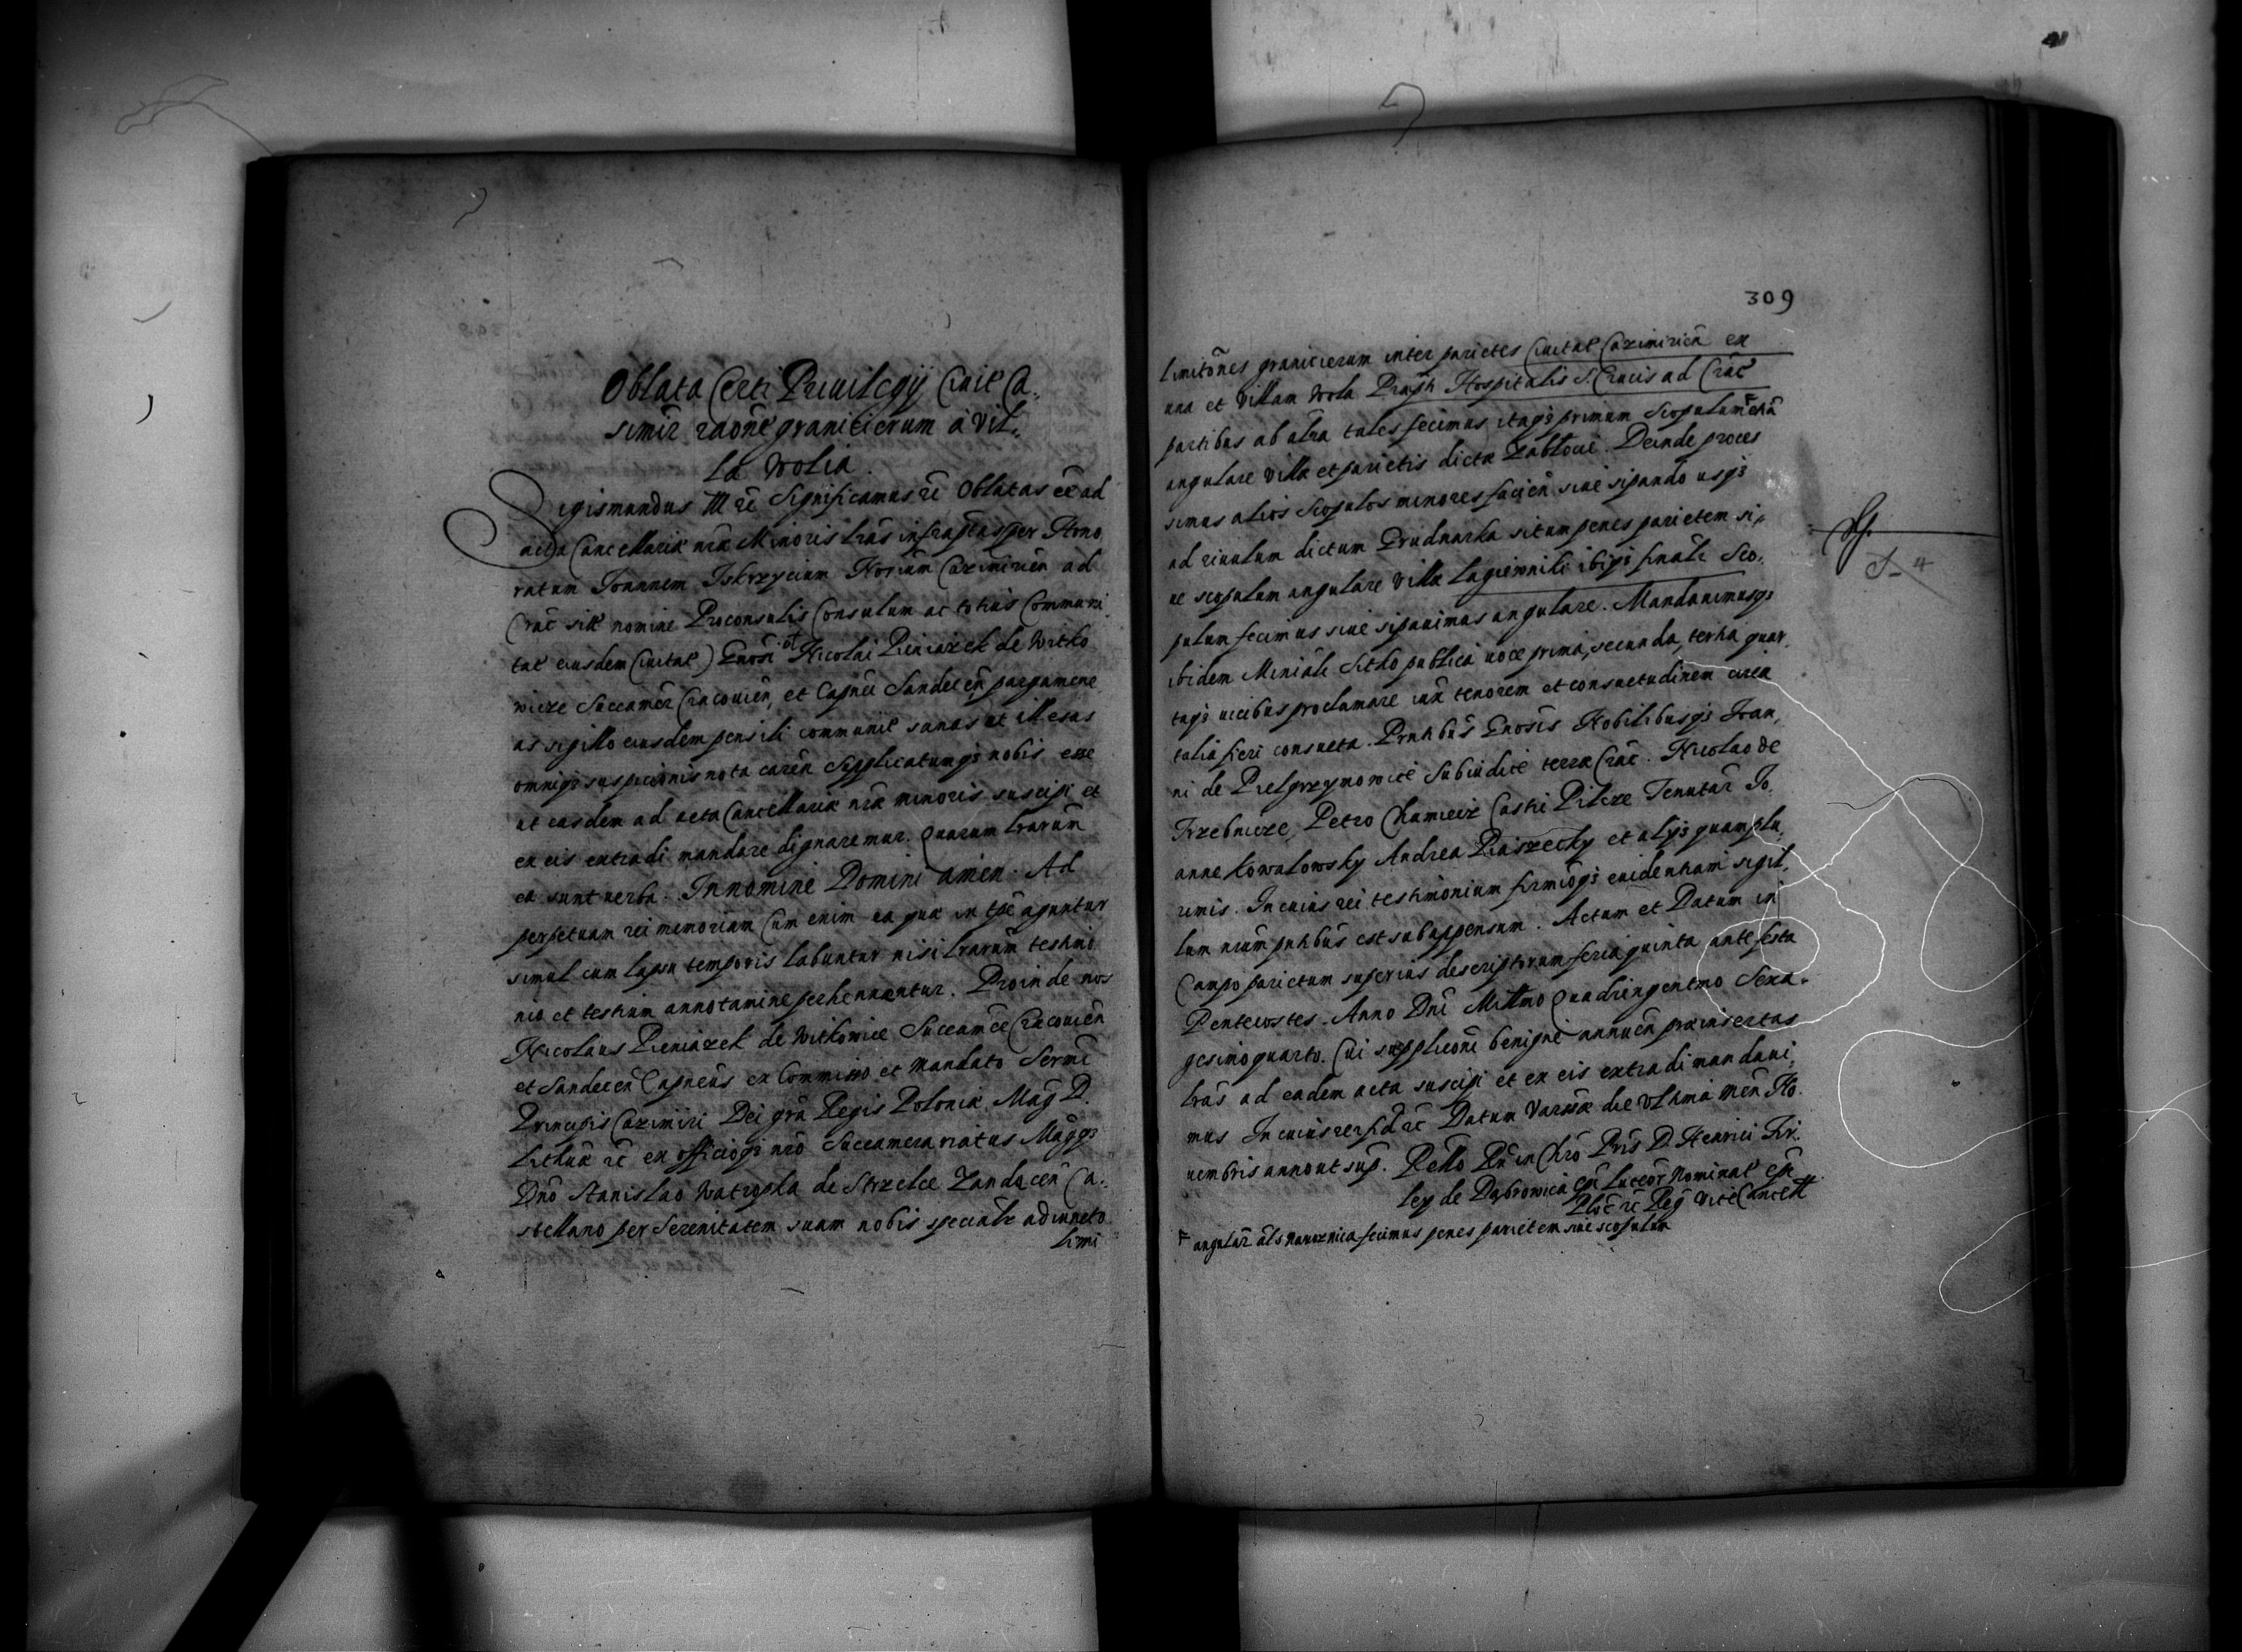 Oblata Certi Priuilegij Ciuit Ca„
simir raōne graniticrum a Vil„
la Wolia.
Sigismundus III rc̄ Significamus rc̄ Oblatas ēe ad
acta Cancellariæ nr̄æ Minoris lrās infrascptas per Hono
ratum Joannem Iskrzycium Nor̄ium Casimirien̄ ad
Crac̄ sitæ nomine Proconsulis Consulum ac totius Communi
tat eiusdem Ciuitat) Gnosi olī Nicolai Pieniazek de Witko
wicze Succamer̄ Cracouien̄, et Capnēi Sandecen̄ pargamene
as sigillo eiusdem pensili communit sanas et illesas
omniq3 suspicionis nota caren̄ Supplicatumq3 nobis esse
ut easdem ad acta Cancellariæ nr̄æ minoris suscipi et
ex eis extradi mandare dignaremur. Quarum lrarum̄
ea sunt uerba. In nomine Domini amen. Ad
perpetuam rei memoriam Cum enim ea quæ in tpē aguntur
simul cum lapsu temporis labuntur nisi lrarum̄ testimo
nio et testium annotamine perhennentur. Proinde nos
Nicolaus Pieniazek de Witkowice Succamēr Cracouien̄
et Sandecen̄ Capnēus ex Commisso et Mandato Sermī
Principis Cazimiri Dei grā Regis Poloniæ Mag D.
Lithuæ rc̄ ex officioq3 nrō Succamerariatus Māgq3
Dnō Stanislao Watropka de Strzelce Zandecen̄ Ca„
stellano per Serenitatem suam nobis specialr̄ adiuncto
limi
309
limitōnes granicierum inter parietes Ciuitat Cazimirien̄ ex
una et Villam Wola Præpti Hospitalis S. Crucis ad Crac̄
partibus ab alrā tales fecimus itaq3 primum Scopulum F
angulare Villæ et parietis dictæ Zablocie. Deinde proces
simus alios Scopulos minores facien̄ siue sipando usq3
ad riuulum dictum Prudnarka situm penes parietem si„
ue scopulum angulare Villæ Lagiewniki ibiq3 finale Sco„
pulum fecimus siue sipauimus angulare. Mandauimusq3
ibidem Miniāli Sitko publicā uoce prima, secunda, tertia quar
taq3 uicibus proclamare iux tenorem et consuetudinem circa
talia fieri consueta. Pn̄tibus Gnosis Nobilibusq3 Joan„
ni de Pielgrzymowice Subiudice terræ Crac̄. Nicolao de
Trzebnicze, Petro Chamiecz Castri Pilcze Tenutar̄ Jo„
anne Kowalowsky Andrea Piaszecky et alijs quamplu„
rimis. In cuius rei testimonium firmioq3 euidentiam sigil„
lum nrūm pn̄tibus est subappensum. Actum et Datum in
Campo parietum superius descriptorum feria quinta ante festa
Pentecostes. Anno Dnī Millmo Quadringentmo Sexa„
gesimo quarto. Cui supplicōni benigne annuen̄ præinsertas
lrās ad eadem acta suscipi et ex eis extradi mandaui„
mus In cuius rei fid rc̄ Datum Varsæ die Vltima Men̄ No
uembris anno ut sup. Relō Rn in Chrō Pris D. Henrici Fir„
ley de Dąbrowica epī Luceor̄ Nominat epī
Ploc̄ rc̄ Reḡ Vice Cancell
F angular̄ als Narożnica fecimus penes parietem siue scopulum